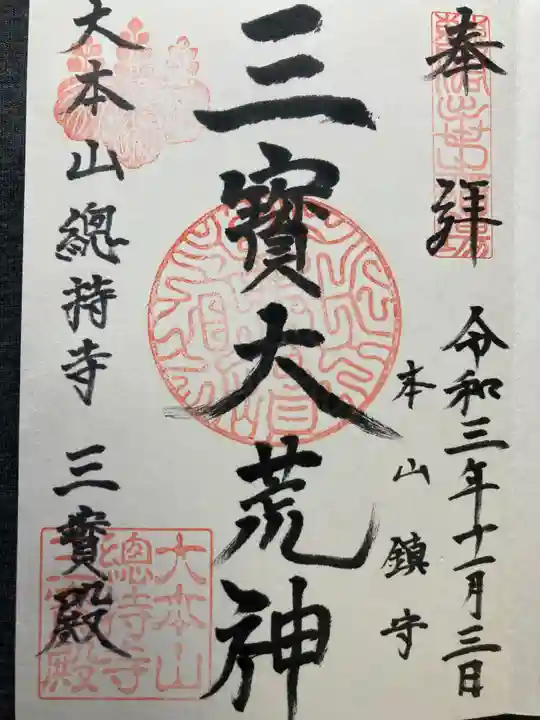 奉拜
令和三年十一月三日
本山鎮守
三寶大荒神
大本山總持寺 三寶殿
大本山
總持寺
三寶殿